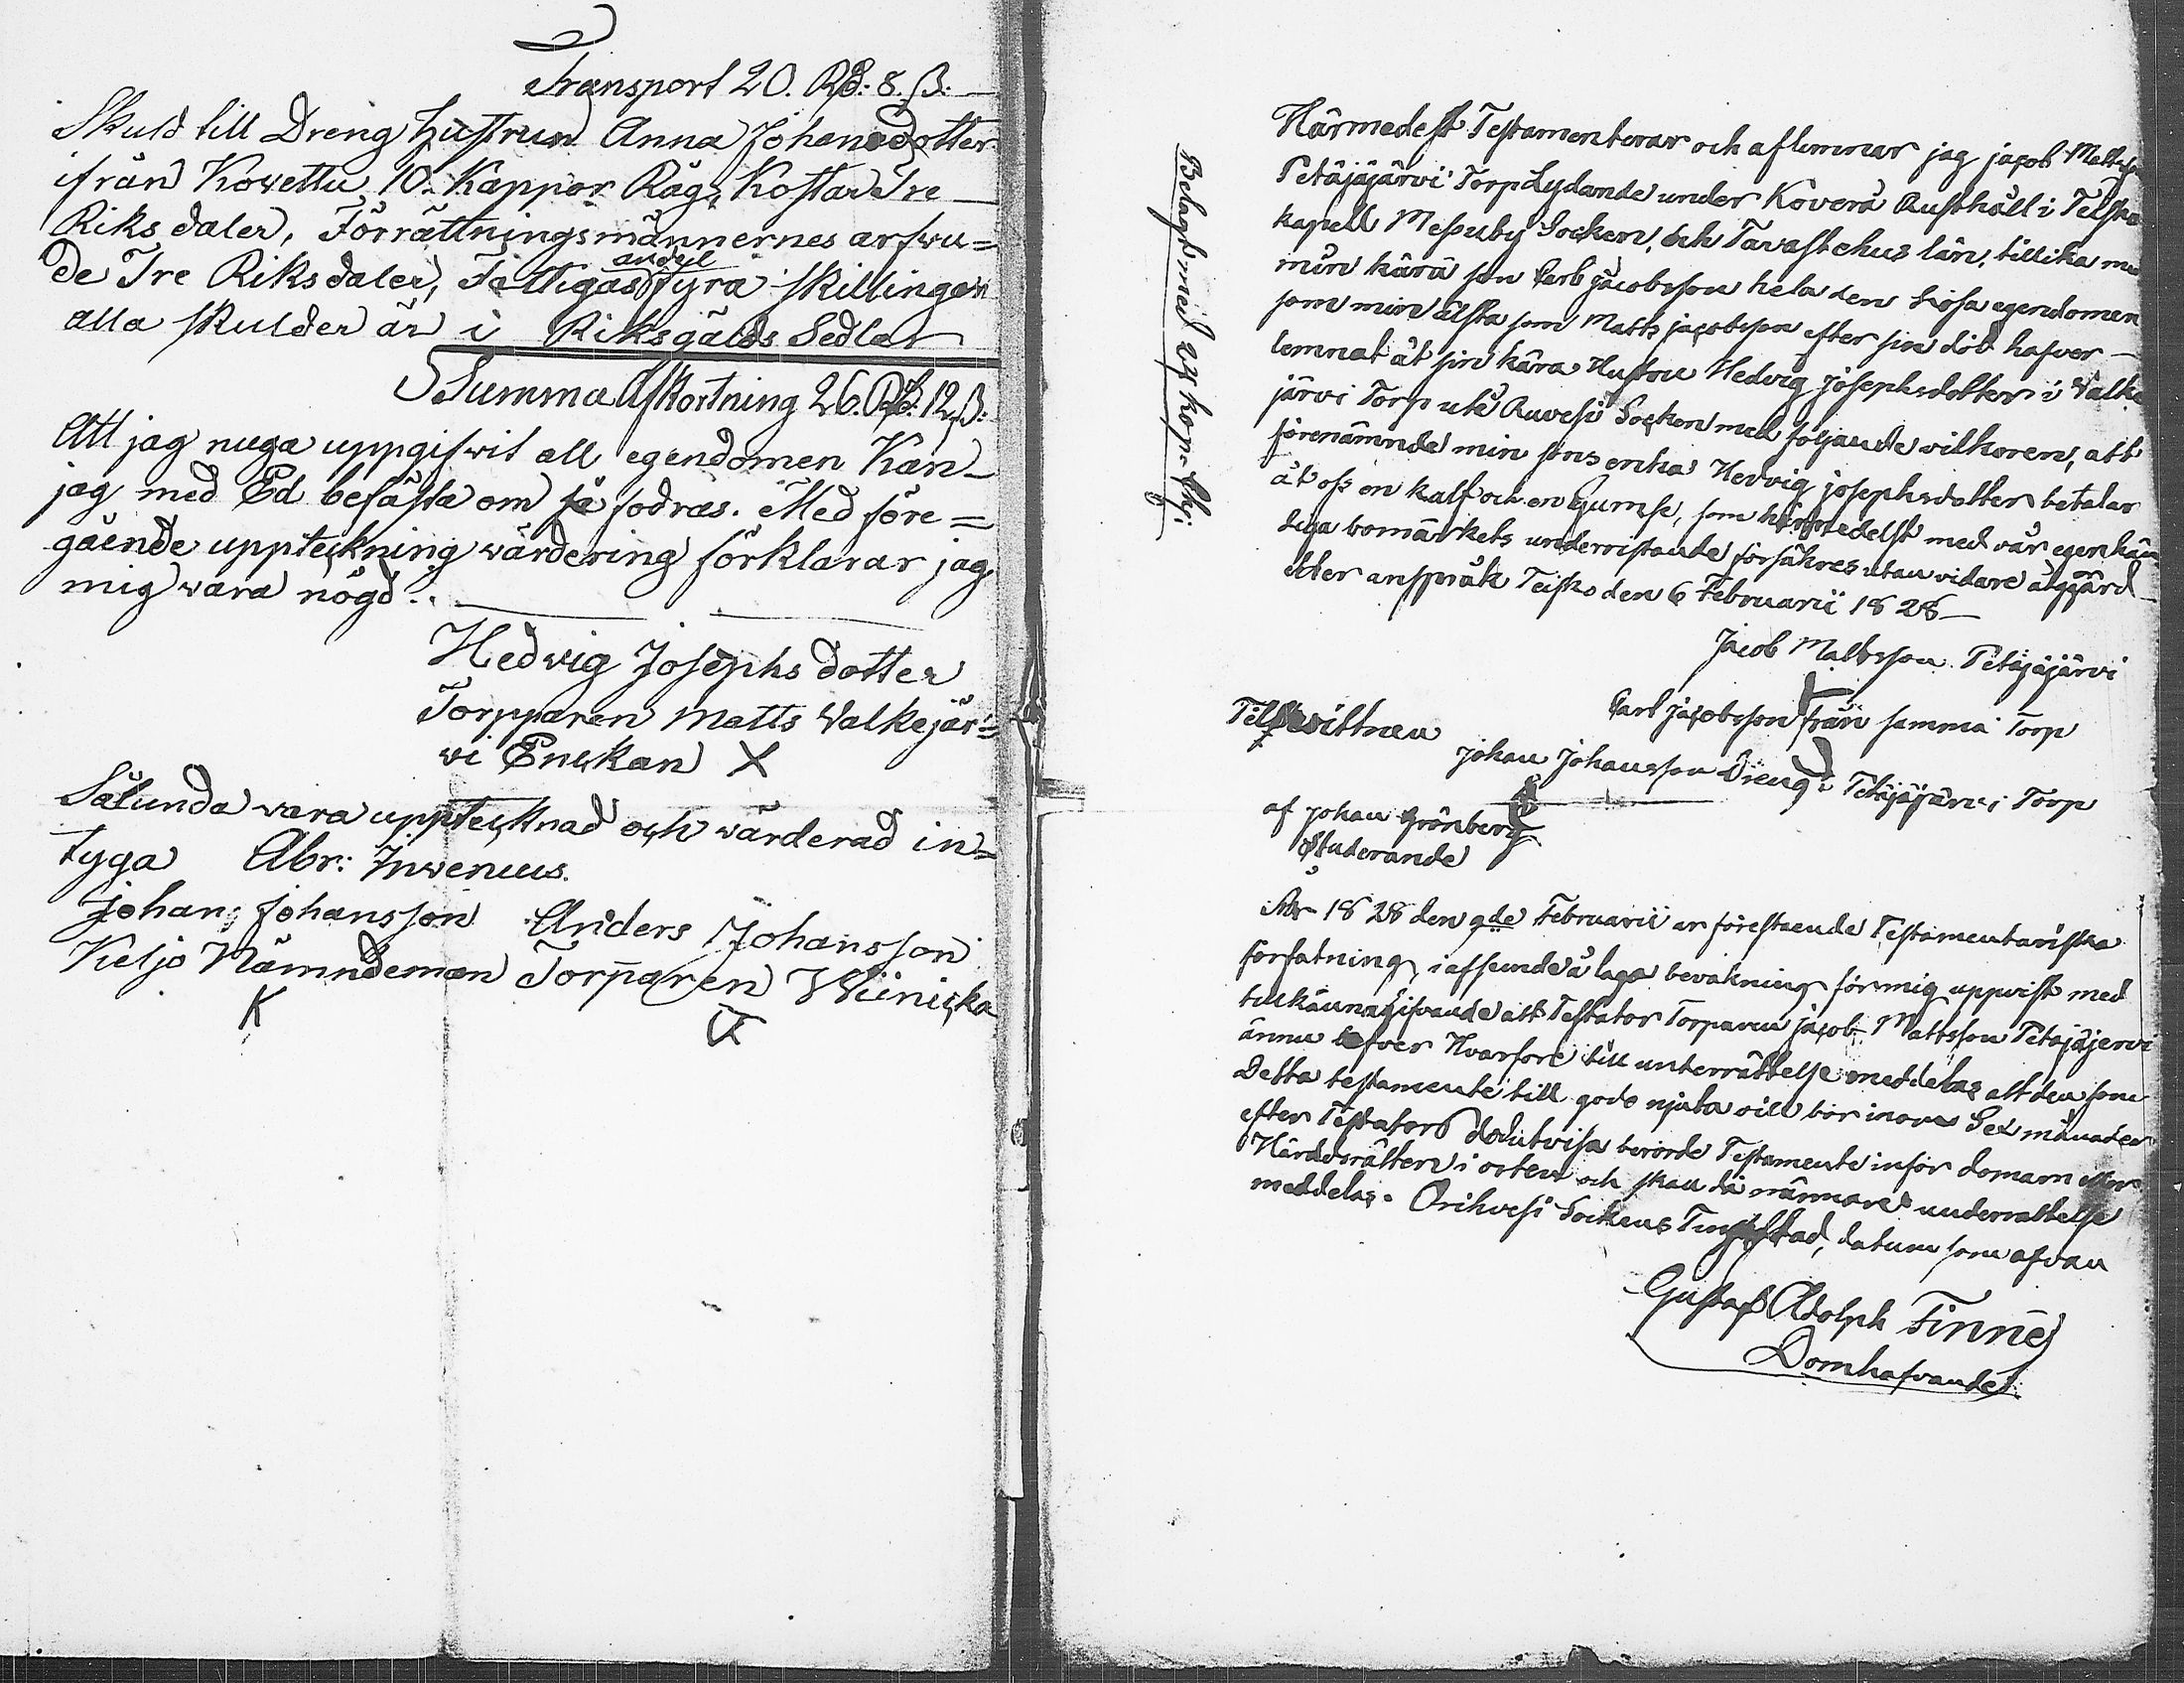 Transport 20. Rd: 8. ß.
Skuld till Dreng hustrun Anna Johansdotter
ifrån Kowettu 10. Kappor Råg, Kostar Tre
Riksdaler, Förrättningsmännernes arfwu=
de Tre Riksdaler, Fattigas andeel fyra skillingar
alla skulder är i Riksgälds Sedlar
Summa Afkortning 26. Rd: 12 ß:
Att jag nuga uppgifwit all egendomen Kan
jag med Ed befästa om så fodras. Med före=
gående uppteckning wärdering förklarar jag
mig wara nögd.
Hedvig Josephs dotter
Torpparen Matts Walkejär=
wi Enckan X
Sålunda wara upptecknad och wärderad in=
tyga Abr: Inwenius.
Johan Johansson Anders Johansson
Keljo Nämndeman Torparen Wiinicka
K
Belagd med 24 kop. Chj:
Härmedelst Testamenterar och aflemnar jag jacob Matts
Petäjäjärvi Torp Lydande under Koverå Rusthåll i Teisko
kapell Messuby Socken, och Tavastehus län, tillika me
min kära son Carl jacobsson hela den lösa egendomen
som min älsta son Matts jacobsson efter sin död hafver
lemnat åt sin kära Hustru Hedvig josephsdotter i Valke
järvi Torp uti Ruovesi Socken med följande vilkoren, att
förenämnde min sons enka Hedvig josephsdotter betalar
åt oss en kalf och en Gumse, som härmedelst med vår egenhän
diga bomärkets underristande försäkres utan vidare åtgjärd
eller anspråk Teisko den 6 Februarii 1828
Jacob Mattsson Petäjäjärvi
Carl Jacobsson från samma Torp
Till vittnen
Johan Johansson Dreng i Petäjäjärvi Torp
af Johan Grönberg
Studerande
År 1828 den 9de Februarii är förestaende Testamentariska
författning, i afseende å laga bevakning för mig uppvist med
tillkännagifvande att Testator Torparen jacob Mattsson Petäjäjervi
ännu lefver Hvarföre till underrättelse meddelas att den som
Detta testamente till godo njuta vill bör inom Sex månader
efter Testators död utvisa berörde Testamente inför domarn eller
Häradsrätten i orten och skall då närmare underrättelse
meddelas. Orihvesi Sockens Tingstad, datum som ofvan
Gustaf Adolph Finne
Domhafvande